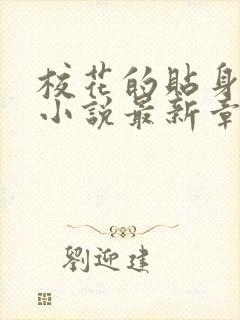 校花的貼身
小說最新章
劉迎建